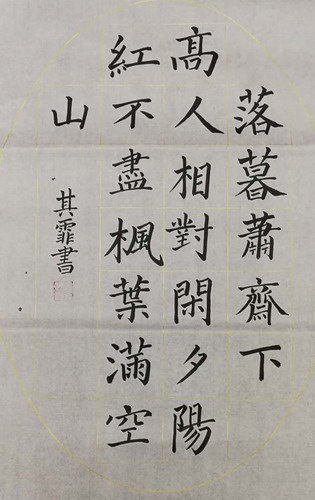 落暮蕭齋下
高人相對閑夕陽
紅不盡楓葉滿空
山
其霏書